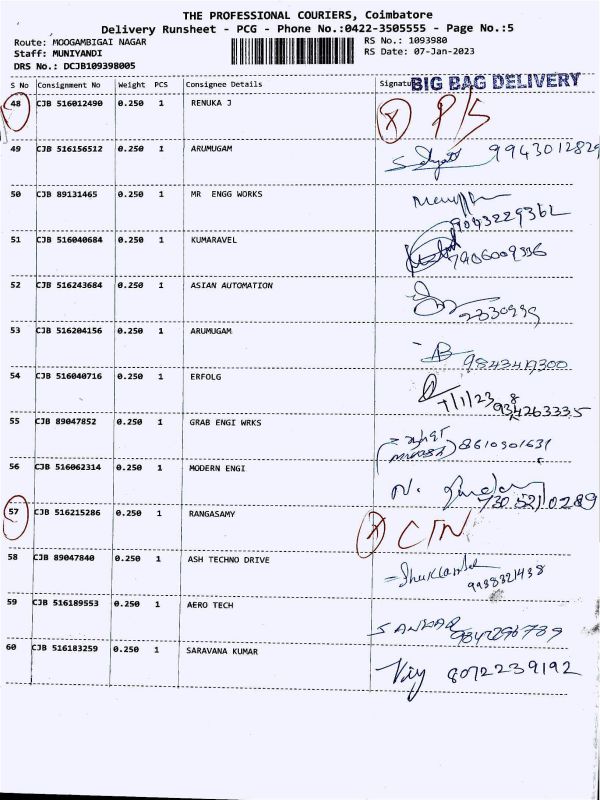 THE PROFESSIONAL COURIERS, Coimbatore
Delivery Runsheet - PCG - Phone No.:0422-3505555 - Page No.:5
Route: MOOGAMBIGAI NAGAR RS No.: 1093980
Staff: MUNIYANDI RS Date: 07-Jan-2023
DRS No.: DCJB109398005
S No Consignment No Weight PCS Consignee Details Signatu BIG BAG DELIVERY
48 CJB 516012490 0.250 1 RENUKA J X P/S
49 CJB 516156512 0.250 1 ARUMUGAM 9943012829
50 CJB 89131465 0.250 1 MR ENGG WORKS 9043229362
51 CJB 516040684 0.250 1 KUMARAVEL 7906009336
52 CJB 516243684 0.250 1 ASIAN AUTOMATION 2330999
53 CJB 516204156 0.250 1 ARUMUGAM AB 9843417300
54 CJB 516040716 0.250 1 ERFOLG 7/1/23
55 CJB 89047852 0.250 1 GRAB ENGI WRKS 8610301631
56 CJB 516062314 0.250 1 MODERN ENGI N. 7305210289
57 CJB 516215286 0.250 1 RANGASAMY X C/N
58 CJB 89047840 0.250 1 ASH TECHNO DRIVE 9988321438
59 CJB 516189553 0.250 1 AERO TECH SANKAR
60 CJB 516183259 0.250 1 SARAVANA KUMAR Vijy 8072239192